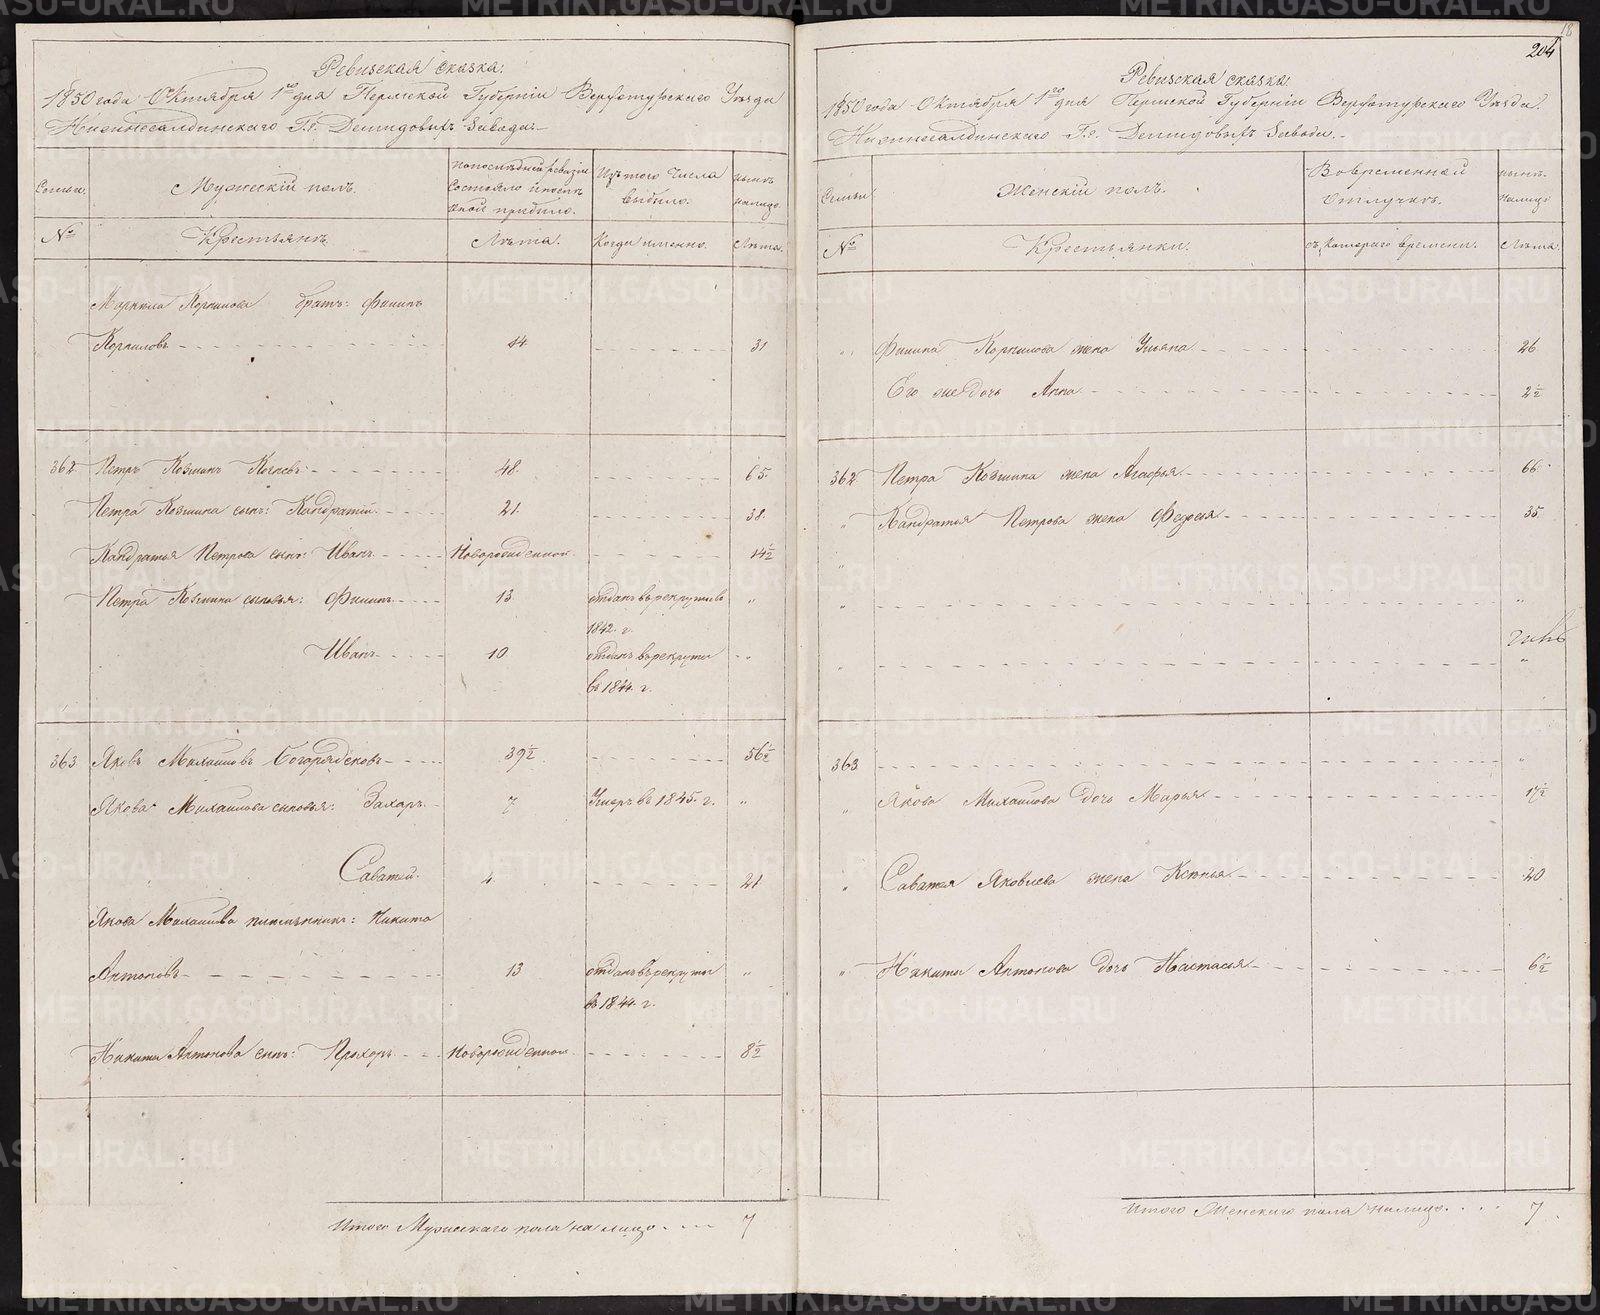 Ревизская сказка.
1850 года Октября 1го дня Пермской Губерніи Верхотурскаго Уѣзда
Нижнесалдинскаго Г.г. Демидовыхъ Завода.
Семьи.
Мужескій полъ.
По послѣдней ревизіи
состояло и послѣ
оной прибыло.
Изъ того числа
выбыло.
нынѣ
налицо.
№
Крестьянъ
Лѣта.
Когда именно.
Лѣта.
Корнилова братъ: Филипъ
Корниловъ 14. 31
362. Петръ Козминъ 48. 65.
Петра Козмина сынъ: Кандратій 21. 38.
Кандратья Петрова сынъ: Иванъ Новорожденной 14½
Петра Козмина сыновья: Филипъ 13 отданъ в рекруты в „
1842. г.
Иванъ 10 отданъ в рекруты „
въ 1844. г.
363 Яковъ Михаиловъ 39½ 56½
Якова Михаилова сыновья: Захаръ 7 Умеръ въ 1845. г. „
Саватей. 4 21
Якова Михаилова племянникъ: Никита
Антоновъ 13 отданъ в рекруты „
въ 1844. г.
Никиты Антонова сынъ: Прохоръ Новорожденной 8½
Итого Мужескаго пола на лицо 7
18
204
Ревизская сказка.
1850 года Октября 1го дня Пермской Губерніи Верхотурскаго Уѣзда.
Нижнесалдинскаго Г.г. Демидовыхъ Завода.
Семьи
Женскій полъ.
Во временной
отлучкѣ.
нынѣ.
налицо
№
Крестьянки.
съ котораго времени.
Лѣта.
„ Филипа Корнилова жена Ульяна 26
Его же дочь Анна 2½
362 Петра Козмина жена Агафья 66
„ Кандратья Петрова жена 35
„
„ „
„ „
363 „
„ Якова Михаилова дочь Марья 17½
„ Саватея Яковлева жена Ксенья 20
„ Никиты Антонова дочь Настасья 6½
Итого Женскаго пола налицо 7
METRIKI.GASO-URAL.RU